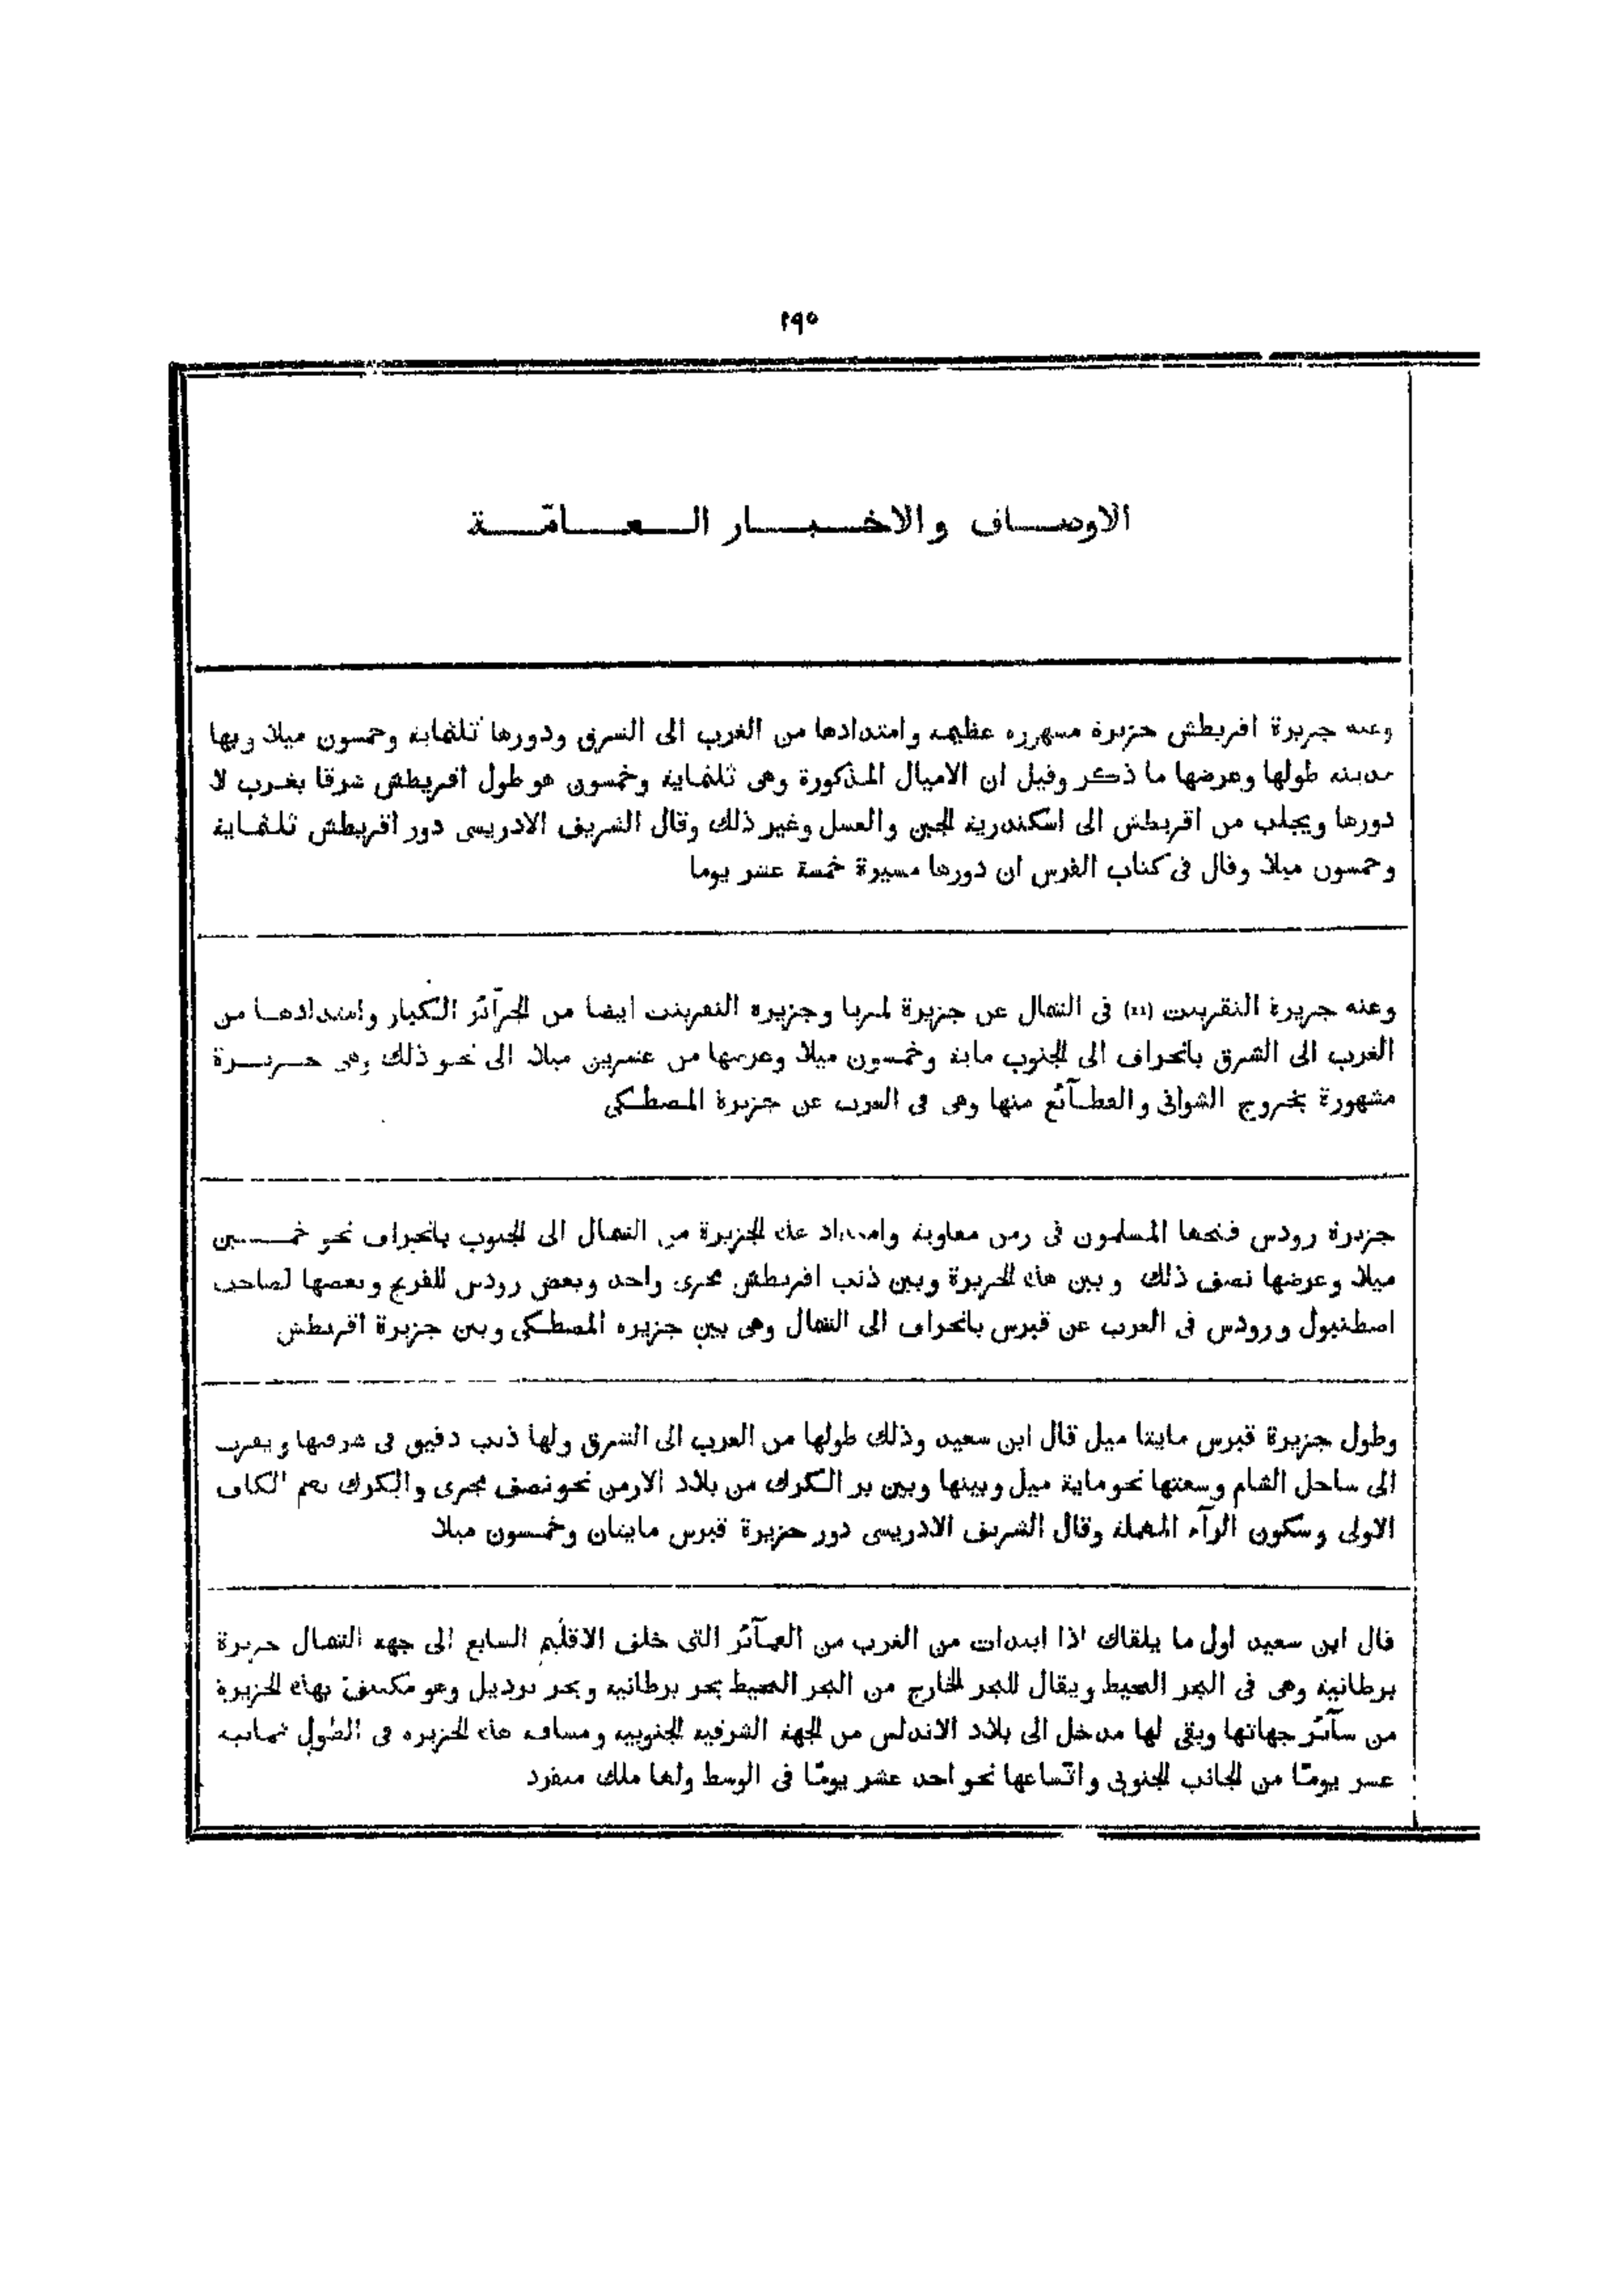 ١٩٥
الاوصاف والاخبار العامّة
وعنه جزيرة اقريطش جزيرة مشهورة عظيمة وامتدادها من الغرب الى الشرق ودورها ثلثماية وخمسون ميلا وبها
مدينة طولها وعرضها ما ذكر وقيل ان الاميال المذكورة وهى ثلثماية وخمسون هو طول اقريطش شرقا بغرب لا
دورها ويجلب من اقريطش الى اسكندرية الجبن والعسل وغير ذلك وقال الشريف الادريسى دور اقريطش ثلثماية
وخمسون ميلا وقال فى كتاب الفرس ان دورها مسيرة خمسة عشر يوما
وعنه جزيرة النقربنت (22) فى الشمال عن جزيرة لمريا وجزيرة النقربنت ايضا من الجزآئر الكبار وامتدادها من
الغرب الى الشرق بانحراف الى الجنوب ماية وخمسون ميلا وعرضها من عشرين ميلا الى نحو ذلك وهى جزيرة
مشهورة بخروج الشوانى والقطآئع منها وهى فى الغرب عن جزيرة المصطكى
جزيرة رودس فتحها المسلمون فى زمن معاوية وامتداد هذه الجزيرة من الشمال الى الجنوب بانحراف نحو خمسين
ميلا وعرضها نصف ذلك وبين هذه الجزيرة وبين ذنب اقريطش مجرى واحد وبعض رودس للفرنج وبعضها لصاحب
اصطنبول ورودس فى الغرب عن قبرس بانحراف الى الشمال وهى بين جزيرة المصطكى وبين جزيرة اقريطش
وطول جزيرة قبرس مايتا ميل قال ابن سعيد وذلك طولها من الغرب الى الشرق ولها ذنب دقيق فى شرقيها ويقرب
الى ساحل الشام وسعتها نحو ماية ميل وبينها وبين بر الكرك من بلاد الارمن نحو نصف مجرى والكرك بضم الكاف
الاولى وسكون الرآء المهملة وقال الشريف الادريسى دور جزيرة قبرس مايتان وخمسون ميلا
قال ابن سعيد اول ما يلقاك اذا ابتدات من الغرب من العمآئر التى خلف الاقليم السابع الى جهة الشمال جزيرة
برطانية وهى فى البحر المحيط ويقال للبحر الخارج من البحر المحيط بحر برطانية وبحر برديل وهو مكتنف بهذه الجزيرة
من سآئر جهاتها وبقى لها مدخل الى بلاد الاندلس من الجهة الشرقية الجنوبية ومسافة هذه الجزيرة فى الطول ثمانية
عشر يومًا من الجانب الجنوبى واتّساعها نحو احد عشر يومًا فى الوسط ولها ملك منفرد